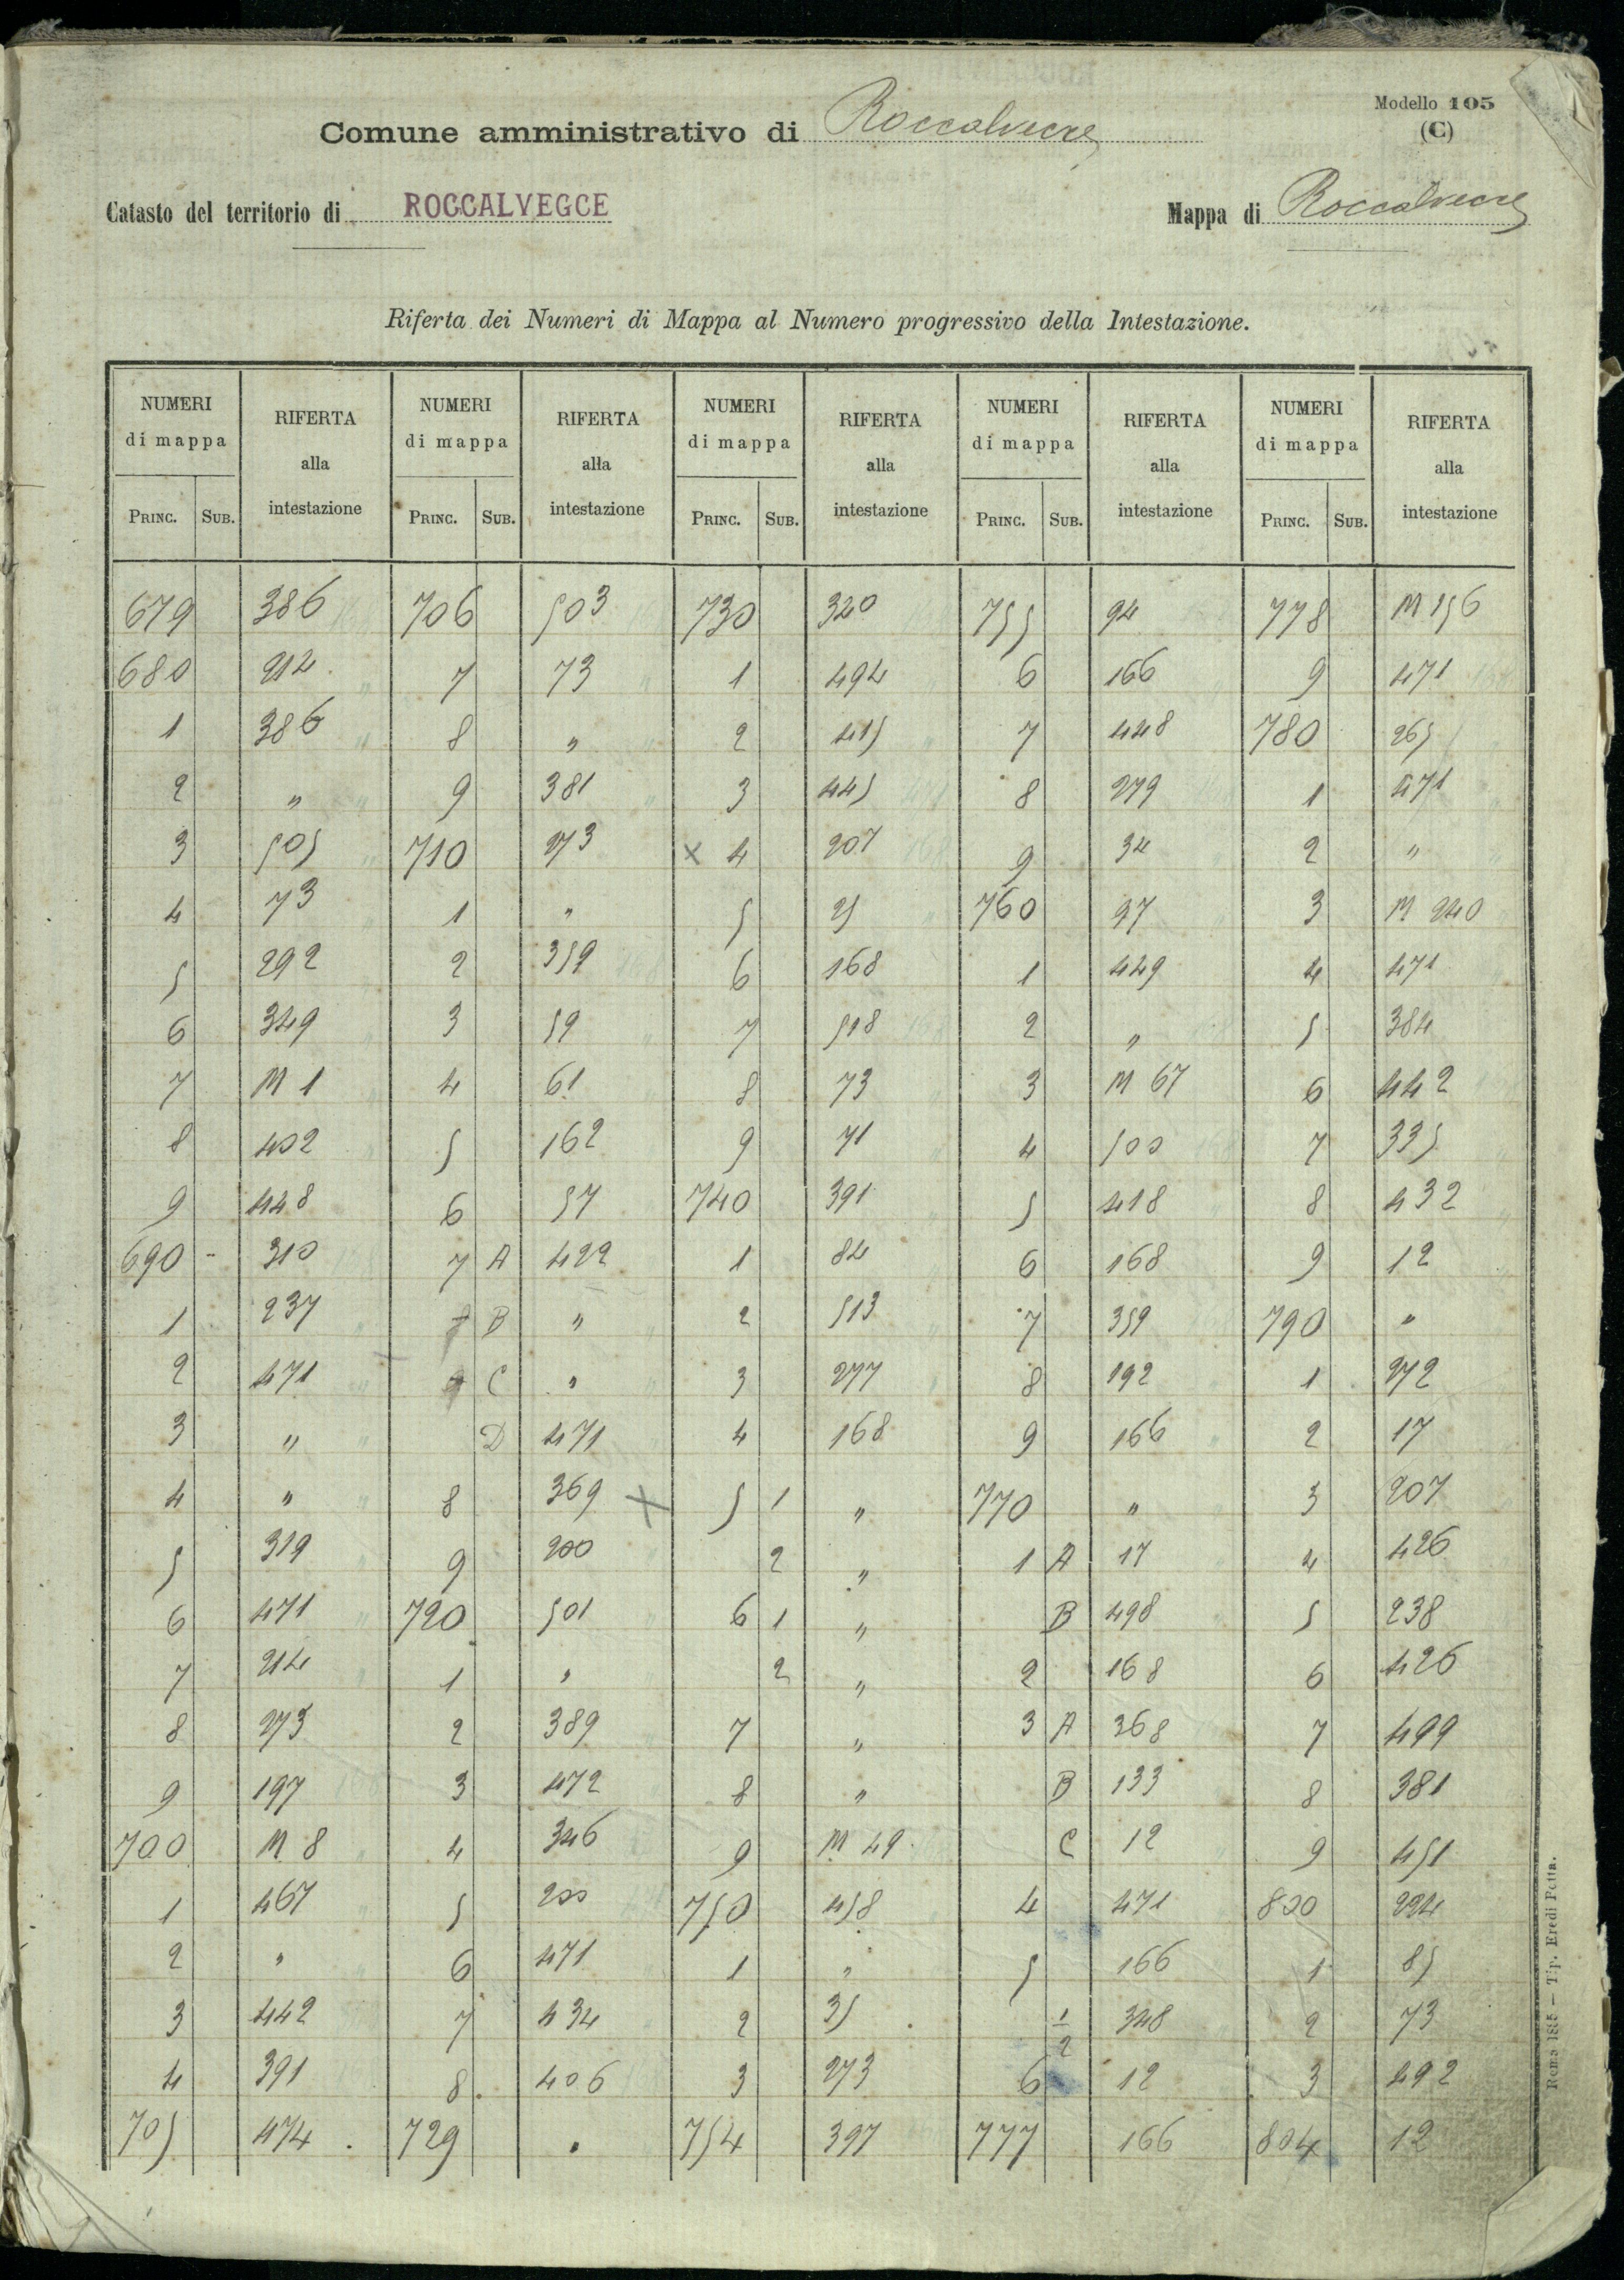 Modello 105
(C)
Comune amministrativo di Roccalvecce
Catasto del territorio di ROCCALVEGCE
Mappa di Roccalvecce
Riferta dei Numeri di Mappa al Numero progressivo della Intestazione.
NUMERI di mappa RIFERTA alla intestazione NUMERI di mappa RIFERTA alla intestazione NUMERI di mappa RIFERTA alla intestazione NUMERI di mappa RIFERTA alla intestazione NUMERI di mappa RIFERTA alla intestazione
PRINC. SUB. PRINC. SUB. PRINC. SUB. PRINC. SUB. PRINC. SUB.
679 386 706 503 730 320 755 94 778 M 156
680 214 7 73 1 494 6 166 9 471
1 386 8 " 2 415 7 448 780 265
2 " 9 381 3 445 8 279 1 471
3 505 710 273 x 4 207 9 34 2 "
4 73 1 " 5 25 760 97 3 M 240
5 292 2 359 6 168 1 449 4 471
6 349 3 59 7 518 2 " 5 384
7 M 1 4 61 8 73 3 M 67 6 442
8 402 5 162 9 71 4 500 7 335
9 448 6 57 740 391 5 418 8 432
690 310 7 A 422 1 84 6 168 9 12
1 237 B " 2 513 7 359 790 "
2 471 C " 3 277 8 192 1 272
3 " D 471 4 168 9 166 2 17
4 " 8 369 x 5 1 " 770 " 3 207
5 319 9 200 2 " 1 A 17 4 426
6 471 720 501 6 1 " B 498 5 238
7 214 1 " 2 " 2 168 6 426
8 273 2 389 7 " 3 A 368 7 499
9 197 3 472 8 " B 133 8 381
700 M 8 4 346 9 M 49 C 12 9 451
1 467 5 200 750 458 4 471 800 224
2 " 6 471 1 " 5 166 1 85
3 442 7 434 2 35 1/2 348 2 73
4 391 8 406 3 273 6 12 3 492
705 474 729 " 754 397 777 166 804 12